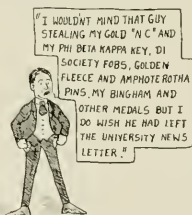 "I WOULDN'T MIND THAT GUY
STEALING MY GOLD "N C" AND
MY PHI BETA KAPPA KEY, DI
SOCIETY FOBS, GOLDEN
FLEECE AND AMPHOTEROTHA
PINS, MY BINGHAM AND
OTHER MEDALS BUT I
DO WISH HE HAD LEFT
THE UNIVERSITY NEWS
LETTER."